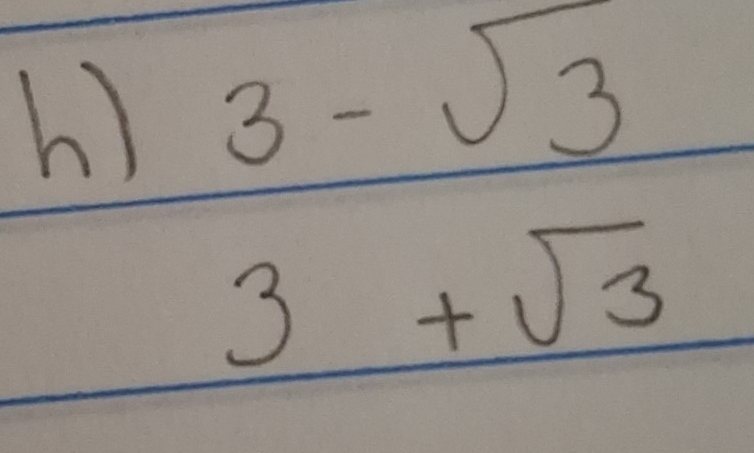 h) 3 - √3
3 + √3